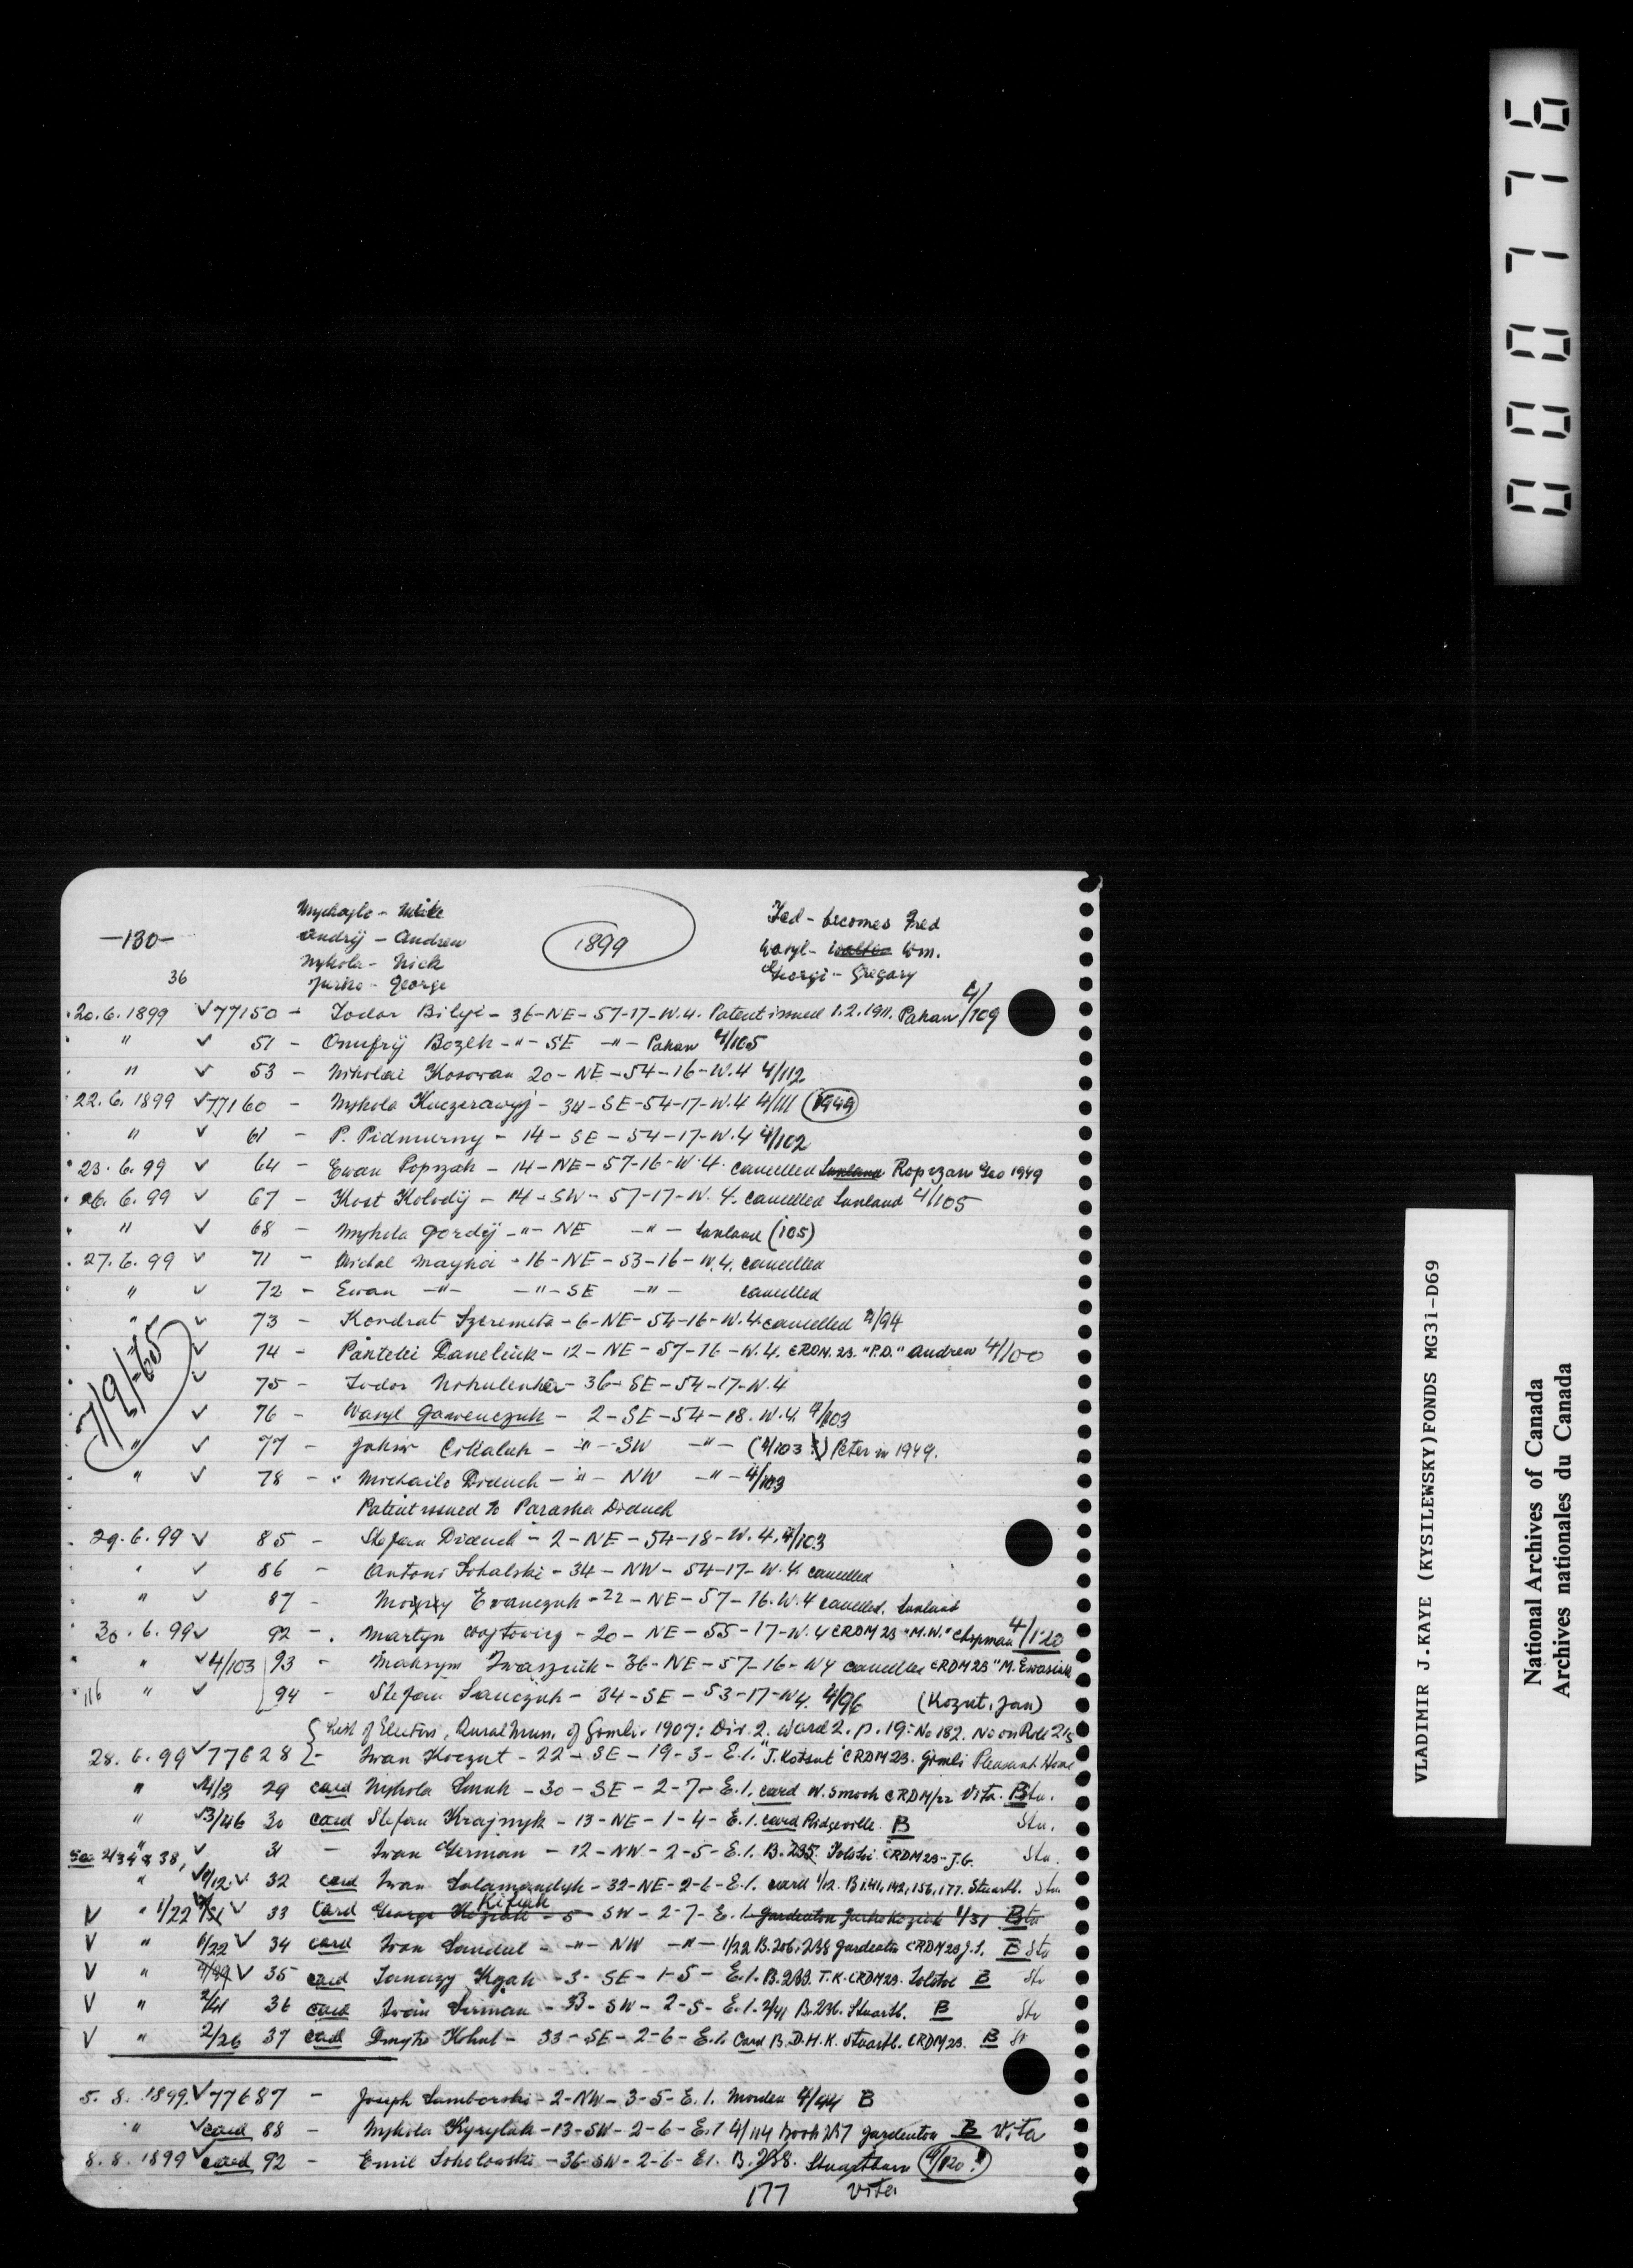 000776
Mychajlo - Mike
Fed - becomes Fred
-130-
Andrij - Andrew
1899
Wasyl - Wm.
Mykola - Nick
Georgi - Gregory
36
Jurko - George
20.6.1899 ✓ 77150 - Fodor Bilyi - 36-NE-57-17-W.4. Patent issued 1.2.1911. Pakan 4/109
" ✓ 51 - Onufrij Bozyk - " - SE - " - Pakan 4/105
" ✓ 53 - Nikolai Kosowan 20-NE-54-16-W.4 4/112
22.6.1899 ✓ 77160 - Mykola Kuczerawyj - 34-SE-54-17-W.4 4/111 (1949)
" ✓ 61 - P. Pidmurny - 14-SE-54-17-W.4 4/102
23.6.99 ✓ 64 - Ewan Poprzak - 14-NE-57-16-W.4. cancelled Ropezan Geo 1949
26.6.99 ✓ 67 - Kost Kolodij - 14-SW-57-17-W.4. cancelled Sunland 4/105
" ✓ 68 - Mykola Gordij - " - NE - " - Sunland (105)
27.6.99 ✓ 71 - Michal Mayka - 16-NE-53-16-W.4. cancelled
" ✓ 72 - Ewan - " - - " - SE - " - cancelled
" ✓ 73 - Kondrat Szeremeta - 6-NE-54-16-W.4. cancelled 4/94
✓ 74 - Pantelei Daneliuk - 12-NE-57-16-W.4. CRDM.23. "P.D." Andrew 4/100
7/9/-65
✓ 75 - Fodor - 36-SE-54-17-W.4
✓ 76 - Wasyl Gawenczuk - 2-SE-54-18.W.4. 4/103
" ✓ 77 - Jakiw Cikaluk - " - SW - " - (4/103) Peter in 1949.
" ✓ 78 - Michailo Diduch - " - NW - " - 4/103
Patent issued to Paraska Diduch
29.6.99 ✓ 85 - Stefan Diduch - 2-NE-54-18-W.4. 4/103
" ✓ 86 - Antoni Sokalski - 34-NW-54-17-W.4. cancelled
" ✓ 87 - Ewanczuk - 22-NE-57-16.W.4 cancelled. Sunland
30.6.99 ✓ 92 - Martyn Wojtowicz - 20-NE-55-17-W.4 CRDM 23 "M.W." Chipman 4/120
" ✓ 4/103 93 - Maksym Iwaszuik - 36-NE-57-16-W4 cancelled CRDM23 "M. Ewasiuk
116 " ✓ 94 - Stefan Sawczuk - 34-SE-53-17-W4. 4/96 (Kozut, Jan)
{ List of Electors, Rural Mun. of Gimli. 1907: Div. 2. Ward 2. p. 19: No 182. No on Roll 215
28.6.99 ✓ 77628 - Iwan Koczut - 22-SE-19-3-E.1. "J. Kotsut" CRDM23. Gimli Pleasant Home
" ✓ 4/8 29 card Mykola Smuk - 30-SE-2-7-E.1. card W. Smook CRDM/22 Vita. B Stu.
" ✓ 3/46 30 card Stefan Krajnyk - 13-NE-1-4-E.1. card Ridgeville B Stu.
See 2/34 & 38, " ✓ 31 - Iwan German - 12-NW-2-5-E.1. B.235. Tolstoi CRDM23-J.G. Stu.
" 1/12 ✓ 32 card Iwan Salamandyk - 32-NE-2-6-E.1. card 1/12. B 141, 142, 156, 177. Stuartb. Stu
Kifiak
V " 1/22 ✓ 33 card George Koziak - 5 SW-2-7-E.1. Gardenton Jurko Koziak 1/31 B Stu
V " 1/22 ✓ 34 card Iwan Sandul - " - NW - " - 1/22 B.206, 238 Gardenton CRDM23 J.S. B Stu
V " ✓ 35 card Kzak - 3-SE-1-5-E.1. B.233. T.K. CRDM23. Tolstoi B Stu
V " 2/41 36 card Iwan Sirman - 33-SW-2-5-E.1. 2/41 B.236. Stuartb. B Stu
V " 2/26 37 card Dmytro Kohut - 33-SE-2-6-E.1. Card B. D.H.K. Stuartb. CRDM23. B St
5.8.1899. ✓ 77687 - Joseph Samborski - 2-NW-3-5-E.1. Morden 4/44 B
" ✓ card 88 - Mykola Kyrylak - 13-SW-2-6-E.1 4/114 Book 237 Gardenton B Vita
8.8.1899 ✓ card 92 - Emil Sokolowski - 36-SW-2-6-E1. B.238. Stuartburn (4/120!)
177 Vita
VLADIMIR J.KAYE (KYSILEWSKY)FONDS MG31-D69
National Archives of Canada
Archives nationales du Canada